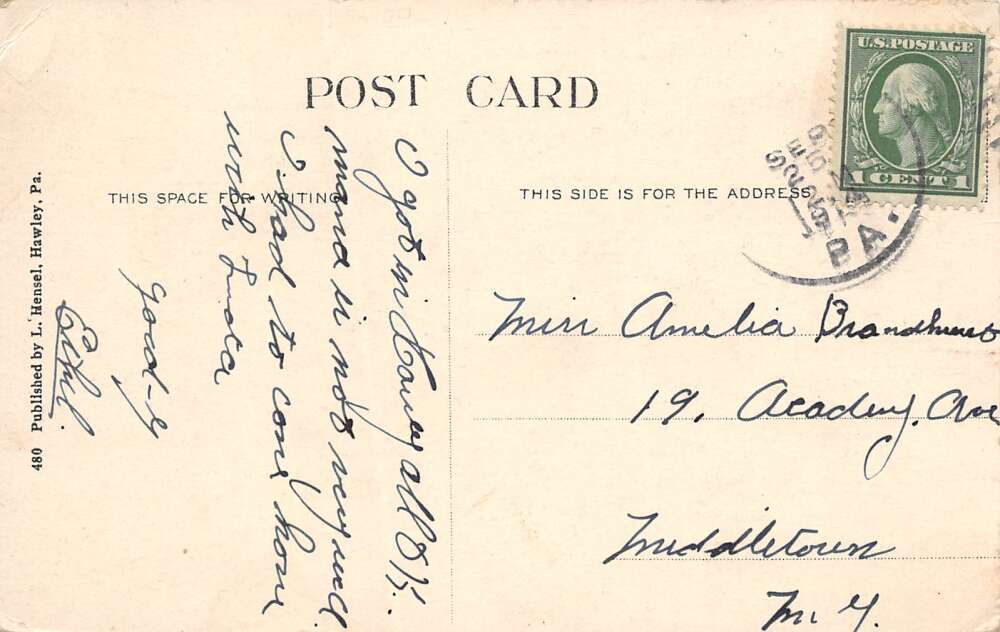 POST CARD
THIS SPACE FOR WRITING
THIS SIDE IS FOR THE ADDRESS
U.S. POSTAGE
1 CENT 1
SEP
PA.
I got in all O.K.
mama is not very well
I had to come home
with
Good-by
Ethel.
Miss Amelia
19, Academy. Ave
Middletown
N. Y.
480 Published by L. Hensel, Hawley, Pa.